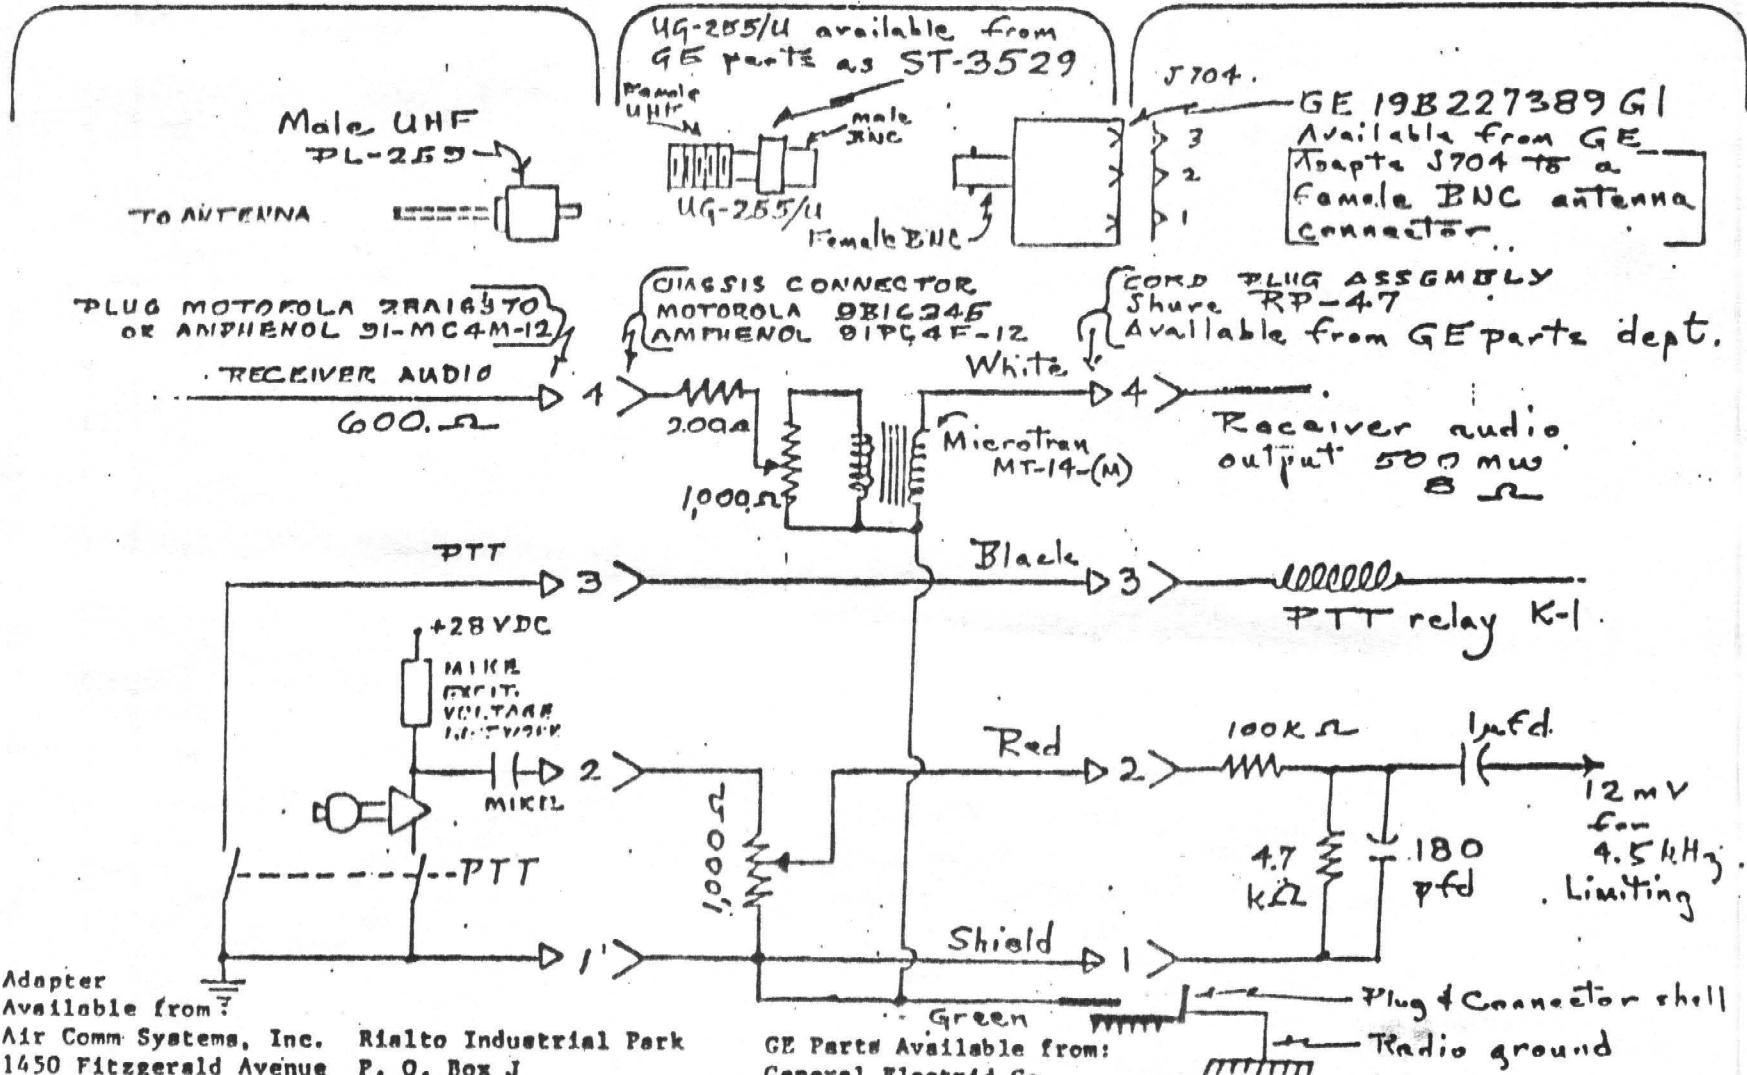 UG-255/U available from
GE parts as ST-3529
Female
UHF
male
BNC
Male UHF
PL-259
TO ANTENNA
UG-255/U
Female BNC
J704.
3
2
1
GE 19B227389 G1
Available from GE
Adapts J704 to a
Female BNC antenna
connector.
PLUG MOTOROLA
OR AMPHENOL 91-MC4M-12
CHASSIS CONNECTOR
MOTOROLA
AMPHENOL 91PC4F-12
CORD PLUG ASSEMBLY
Shure RP-47
Available from GE parts dept.
RECEIVER AUDIO
600 Ω
4
200Ω
1,000Ω
White
Microtran
MT-14-(M)
4
Receiver audio
output 500 mw
8 Ω
PTT
3
Black
3
PTT relay K-1.
+28 VDC
MIKE
EXCIT.
VOLTAGE
NETWORK
MIKE
2
Red
2
100K Ω
1µfd.
12 mV
for
4.5 kHz.
Limiting
1,000Ω
4.7
kΩ
180
pfd
PTT
1
Shield
1
Green
Plug & Connector shell
Radio ground
Adapter
Available from:
Air Comm Systems, Inc. Rialto Industrial Park
1450 Fitzgerald Avenue P. O. Box J
GE Parts Available from:
General Electric Co.